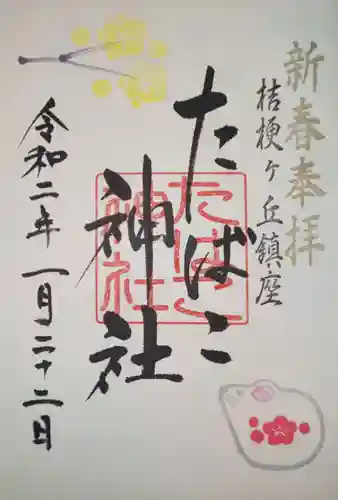 新春奉拝
桔梗ヶ丘鎮座
たばこ
神社
たばこ
神社
令和二年一月二十二日